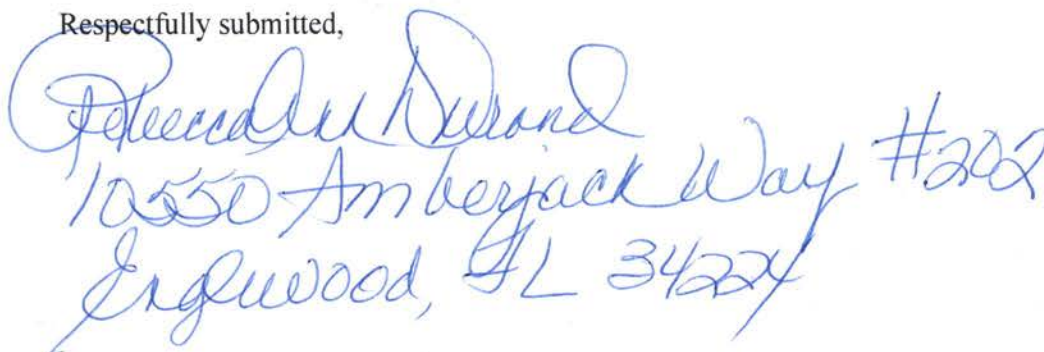 Respectfully submitted,
Rebecca Ann Durand
10550 Amberjack Way #202
Englewood, FL 34224